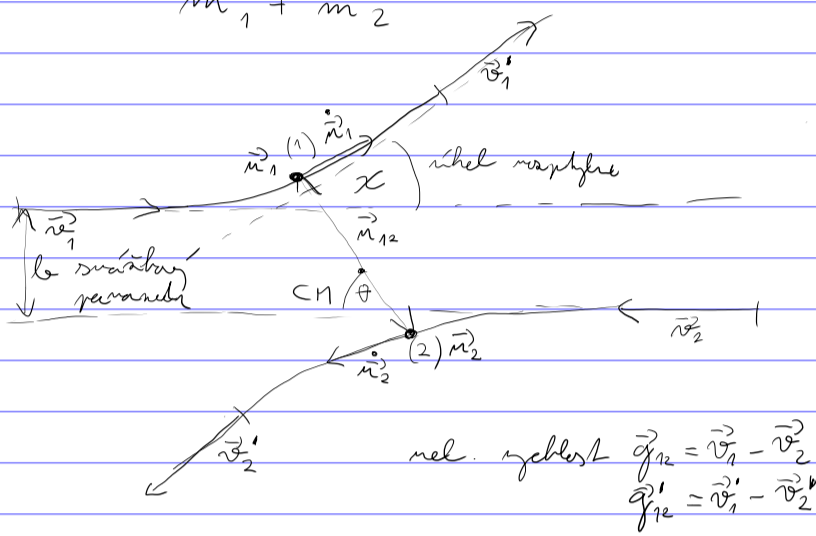 m₁ + m₂
v⃗₁'
(1) ṙ⃗₁
r⃗₁
χ
úhel rozptylu
v⃗₁
r⃗₁₂
b srážkový
parametr
CM θ
v⃗₂
(2) r⃗₂
ṙ⃗₂
v⃗₂'
rel. rychlost g⃗₁₂ = v⃗₁ - v⃗₂
g⃗₁₂' = v⃗₁' - v⃗₂'